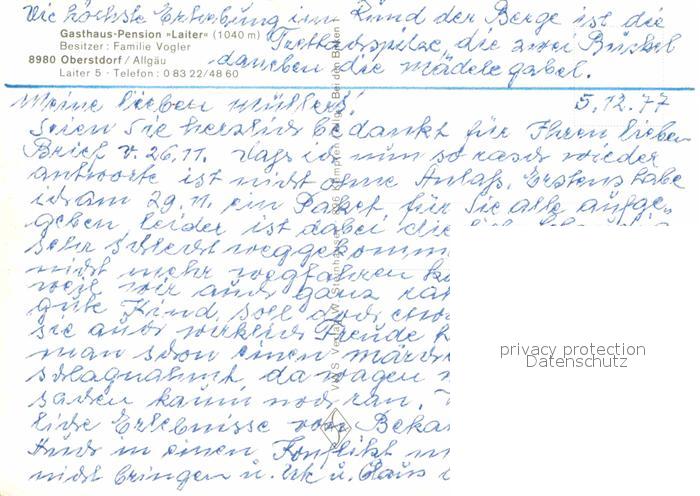 Die höchste Erhebung im Rund der Berge ist die
Gasthaus-Pension »Laiter« (1040 m)
Besitzer: Familie Vogler
8980 Oberstdorf / Allgäu
Laiter 5 · Telefon: 0 83 22/48 60
die zwei Buckel
daneben die Mädelegabel.
Meine lieben Müllers!
5.12.77
Seien Sie herzlich bedankt für Ihren lieben
Brief v. 26.11. Dass ich nun so rasch wieder
antworte ist nicht ohne Anlaß. Erstens habe
ich am 29.11. ein Paket für Sie alle aufge-
geben, leider ist dabei die
sehr schlecht weggekomm
nicht mehr wegfahren
weil wir auch ganz
gute Kind soll doch
sie auch wirklich Freude
man schon einen
schlagnahmt, da wagen
kaum noch ran.
liche Erlebnisse von Beka
in einen Konflikt
nicht bringen u. u. Claus
privacy protection
Datenschutz